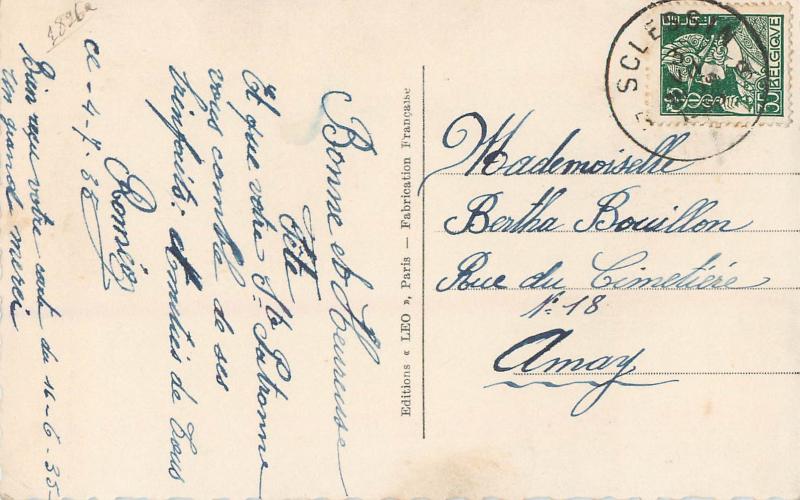 Bonne et Heureuse
Fête
Et que votre Ste Patronne
vous comble de ses
bienfaits. Amitiés de tous
Roméo
ce - 4-7-35
Bien reçu votre cart du 16-6-35-
un grand merci
Editions « LEO », Paris — Fabrication Française
SCLESSIN
BELGIQUE
Mademoiselle
Bertha Bouillon
Rue du Cimetière
N° 18
Amay